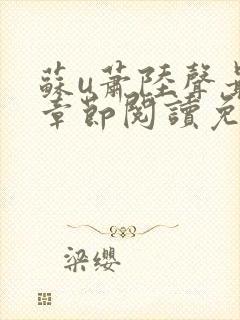 蘇u蕭陸聲
章節閱讀免
梁纓